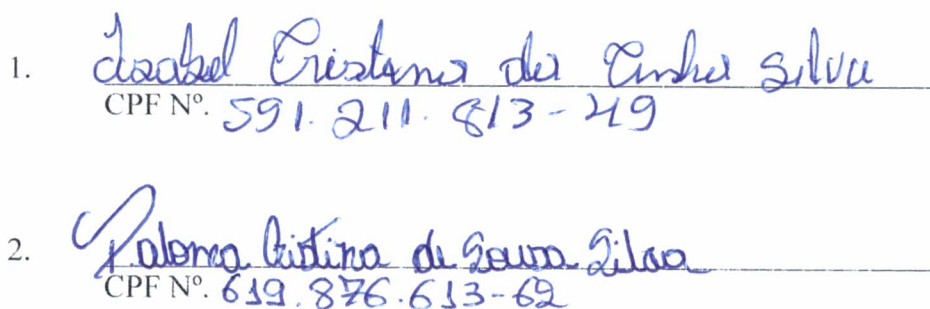 1. Isabel Cristana da Cunha Silva
CPF Nº. 591.211.813-49
2. Paloma Cristina de Sousa Silva
CPF Nº. 619.876.613-62